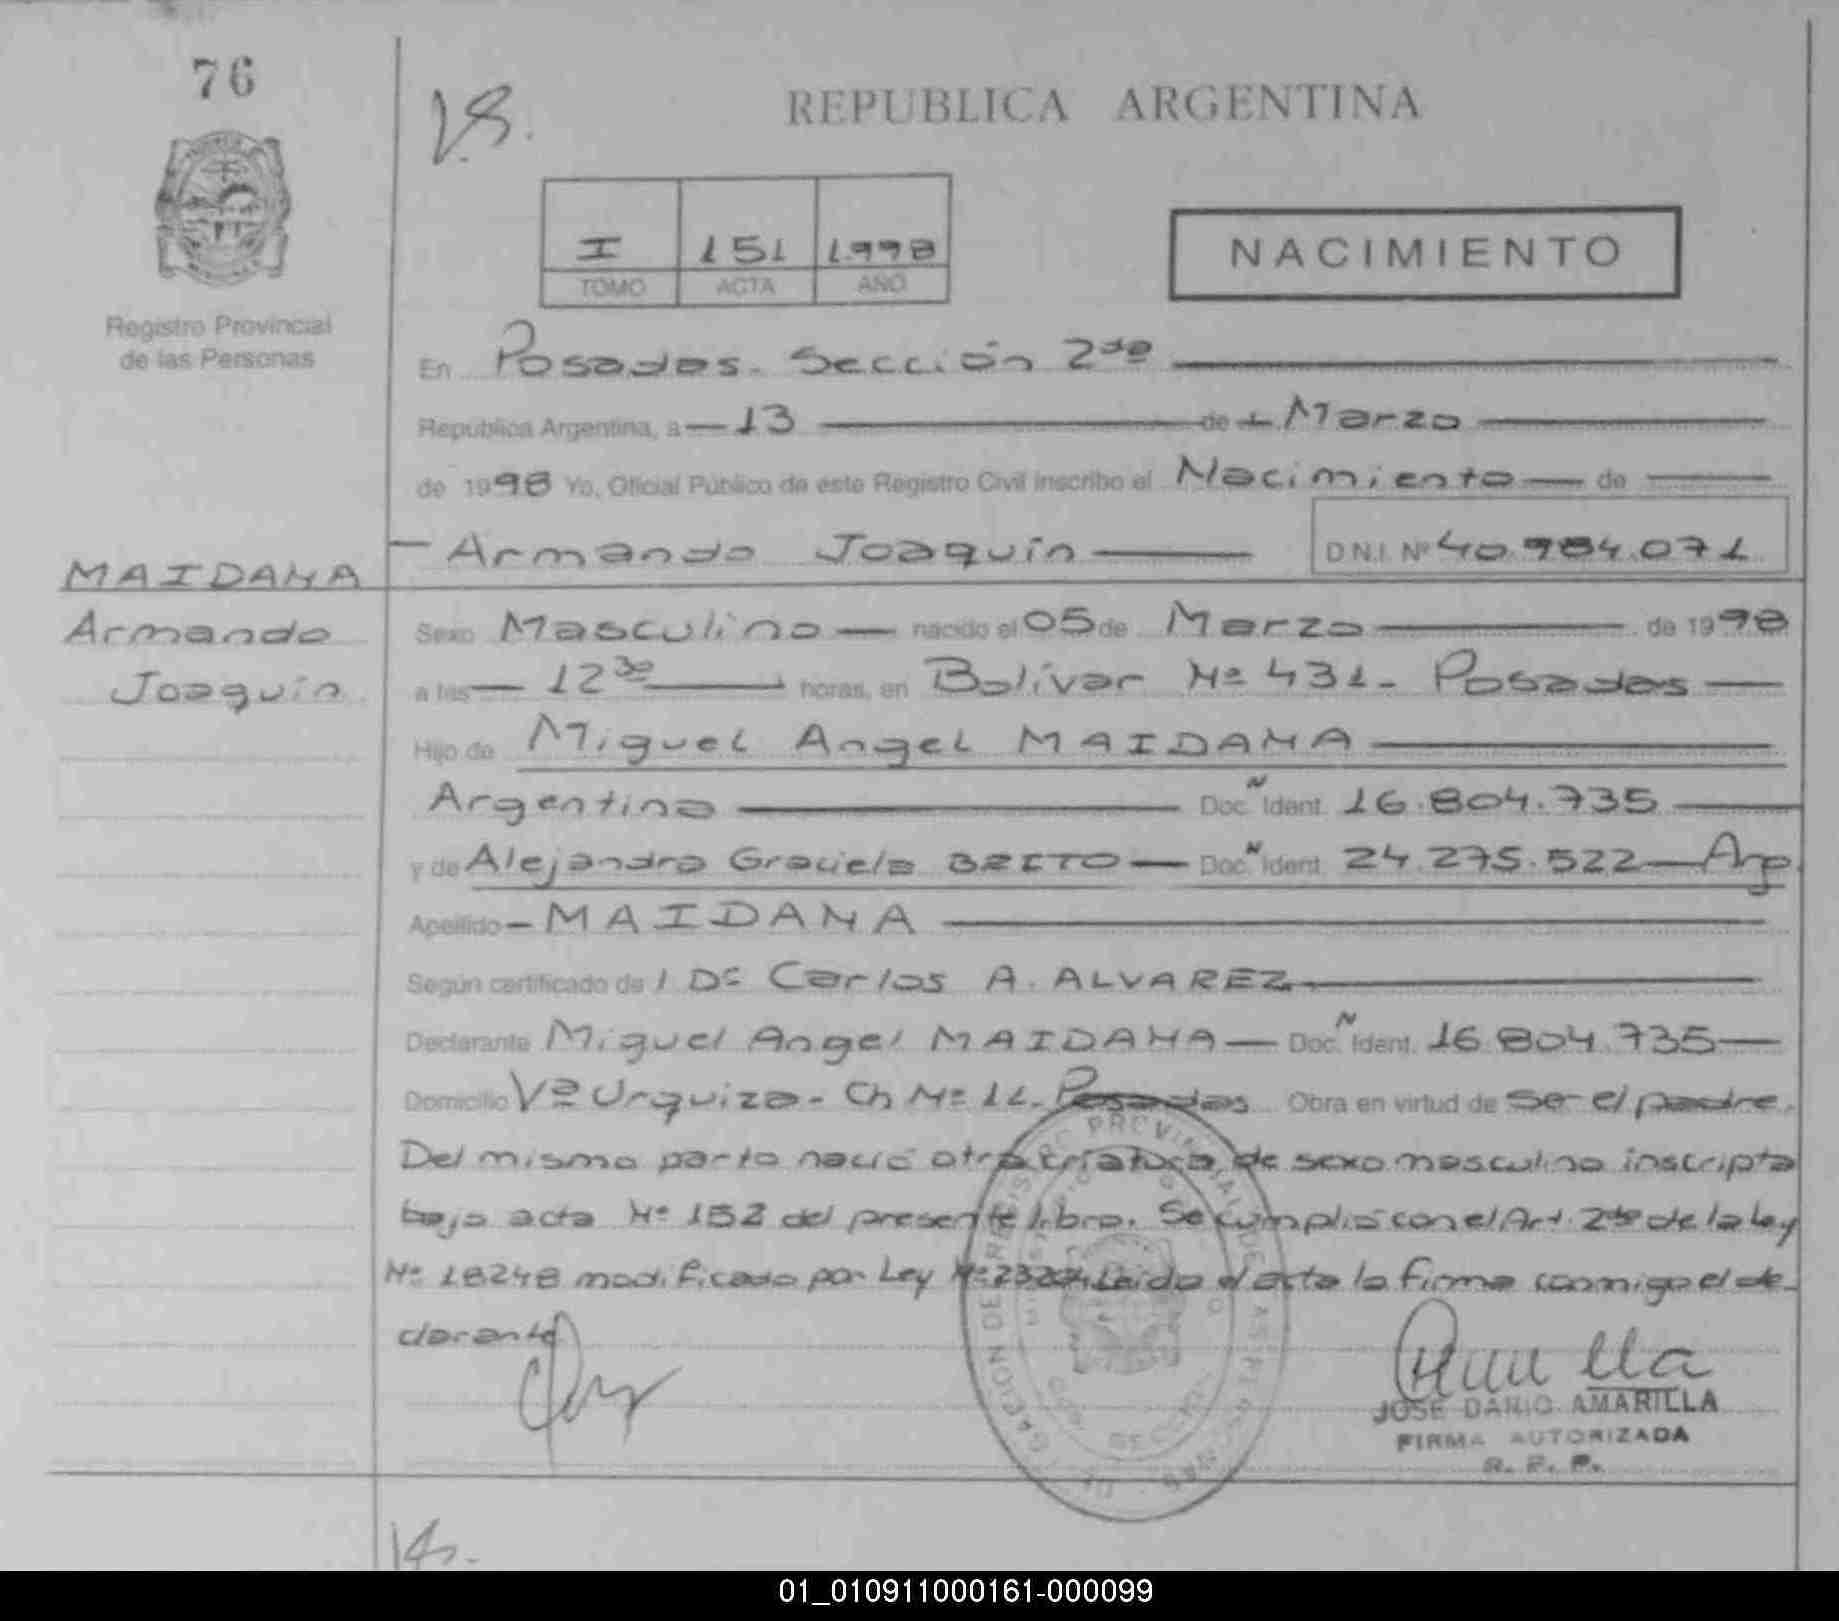 76
V.S.
REPUBLICA ARGENTINA
I 151 1.998
TOMO ACTA AÑO
NACIMIENTO
Registro Provincial
de las Personas
En Posadas. Sección 2da
República Argentina, a 13 de Marzo
de 1998 Yo, Oficial Público de este Registro Civil inscribo el Nacimiento de
Armando Joaquín D.N.I. Nº 40.984.071
MAIDANA
Armando
Joaquín
Sexo Masculino nacido el 05 de Marzo de 1998
a las 12 30 horas, en Bolívar Nº 431- Posadas
Hijo de Miguel Angel MAIDANA
Argentino Doc. Ident. 16.804.735
y de Alejandra Graciela BRITO Doc. Ident. 24.275.522 Arg
Apellido MAIDANA
Según certificado de l Dr Carlos A. ALVAREZ
Declarante Miguel Angel MAIDANA Doc. Ident. 16.804.735
Domicilio Vª Urquiza- Ch Nº 11- Posadas Obra en virtud de ser el padre.
Del mismo parto nació otra criatura, de sexo masculino inscripta
bajo acta Nº 152 del presente libro. Se cumplió con el Art. 2do de la Ley
Nº 18248 modificado por Ley Leída el acta la firma conmigo el de-
clarante
JOSE DARIO AMARILLA
FIRMA AUTORIZADA
R. P. P.
01_010911000161-000099